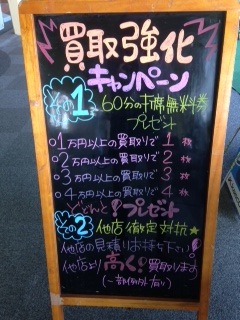 買取強化
キャンペーン
その1
60分の1席無料券
プレゼント
○1万円以上の買取りで1枚
○2万円以上の買取りで2枚
○3万円以上の買取りで3枚
○4万円以上の買取りで4枚
どどんと!プレゼント
その2 他店徹定対抗★
他店の見積りお持ち下さい!
他店より高く!買取ります
(一部例外有り)